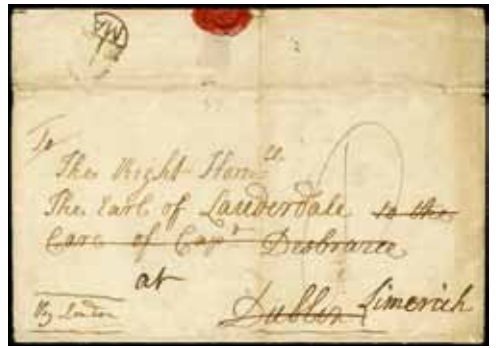 MA
To
The Right Hon.ble
The Earl of Lauderdale to the
Care of Capt Desbrazee
at
Dublin Limerick
By London